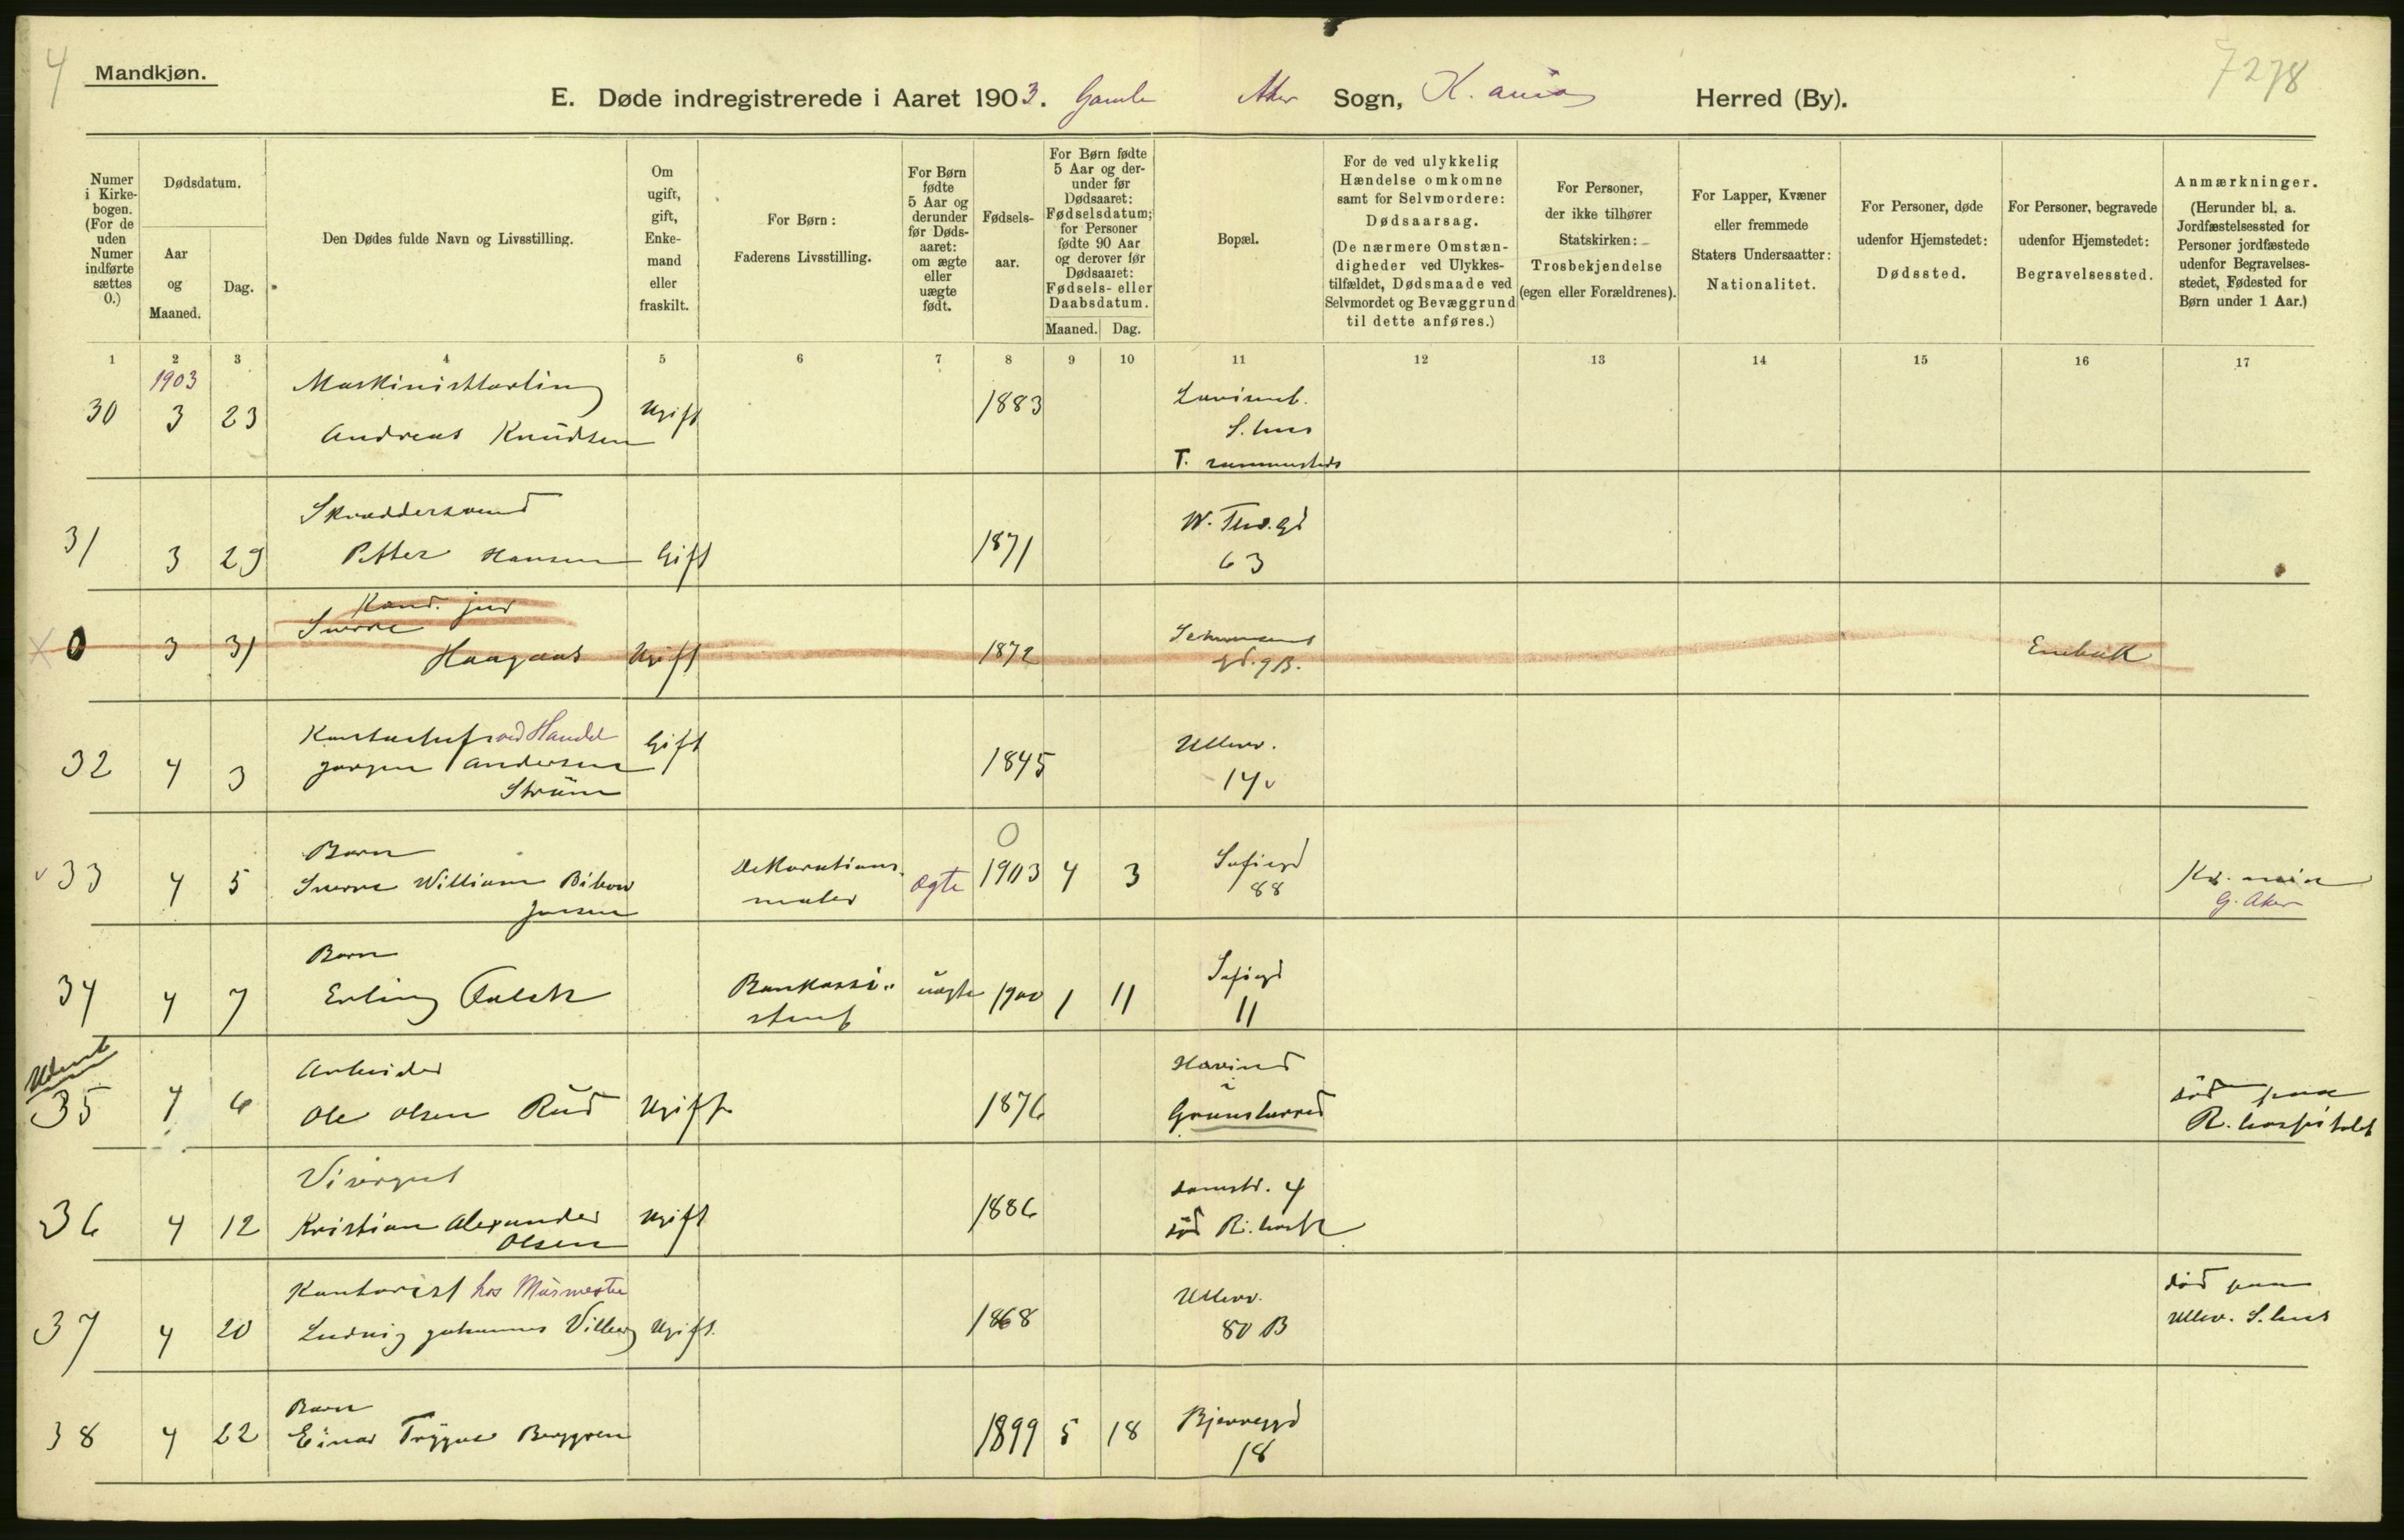 4
Mandkjøn.
7278
E. Døde indregistrerede i Aaret 1903. Gamle Aker Sogn, K.ania Herred (By).
Numer i Kirke-bogen. (For de uden Numer indførte sættes O.)
Dødsdatum.
Aar og Maaned.
Dag.
Den Dødes fulde Navn og Livsstilling.
Om ugift, gift, Enke-mand eller fraskilt.
For Børn: Faderens Livsstilling.
For Børn fødte 5 Aar og derunder før Døds-aaret: om ægte eller uægte født.
Fødsels-aar.
For Børn fødte 5 Aar og der-under før Dødsaaret: Fødselsdatum; for Personer fødte 90 Aar og derover før Dødsaaret: Fødsels- eller Daabsdatum.
Maaned. Dag.
Bopæl.
For de ved ulykkelig Hændelse omkomne samt for Selvmordere: Dødsaarsag. (De nærmere Omstæn-digheder ved Ulykkes-tilfældet, Dødsmaade ved Selvmordet og Bevæggrund til dette anføres.)
For Personer, der ikke tilhører Statskirken: Trosbekjendelse (egen eller Forældrenes).
For Lapper, Kvæner eller fremmede Staters Undersaatter: Nationalitet.
For Personer, døde udenfor Hjemstedet: Dødssted.
For Personer, begravede udenfor Hjemstedet: Begravelsessted.
Anmærkninger. (Herunder bl. a. Jordfæstelsessted for Personer jordfæstede udenfor Begravelses-stedet, Fødested for Børn under 1 Aar.)
1 2 3 4 5 6 7 8 9 10 11 12 13 14 15 16 17
1903
Maskinistlærling
30 3 23 Andreas Knudsen Ugift 1883
S.hus
Skræddersvend
31 3 29 Petter Hansen Gift 1871
63
Kand. jur
Sverre
0 3 31 Haagaas Ugift 1872 gd. 9B. Enebak
ved Handel
32 4 3 Jørgen Andersen Gift 1845 Ullevv.
Strøm 14
0
Barn
33 4 5 Sverre William Dekorations-maler ægte 1903 4 3 Sofiegd 88 Kr.ania
Jensen G. Aker
Barn
34 4 7 Erling Falch Bankassi-stent uægte 1900 1 11 Sofiegd 11
Arbeider
35 4 6 Ole Olsen Rud Ugift 1876
i
død paa
R.hospitalet
Visergut
36 4 12 Kristian Alexander Ugift 1886 Damstr. 4
Olsen død R.hosp
Kontorist hos Murmester
37 4 20 Ludvig Johannes Villberg Ugift 1868 Ullevv. 80 B
død paa
Ullev. S.hus
Barn
38 4 22 Einar Trygve Berggren 1899 5 18 Bjerregd 18